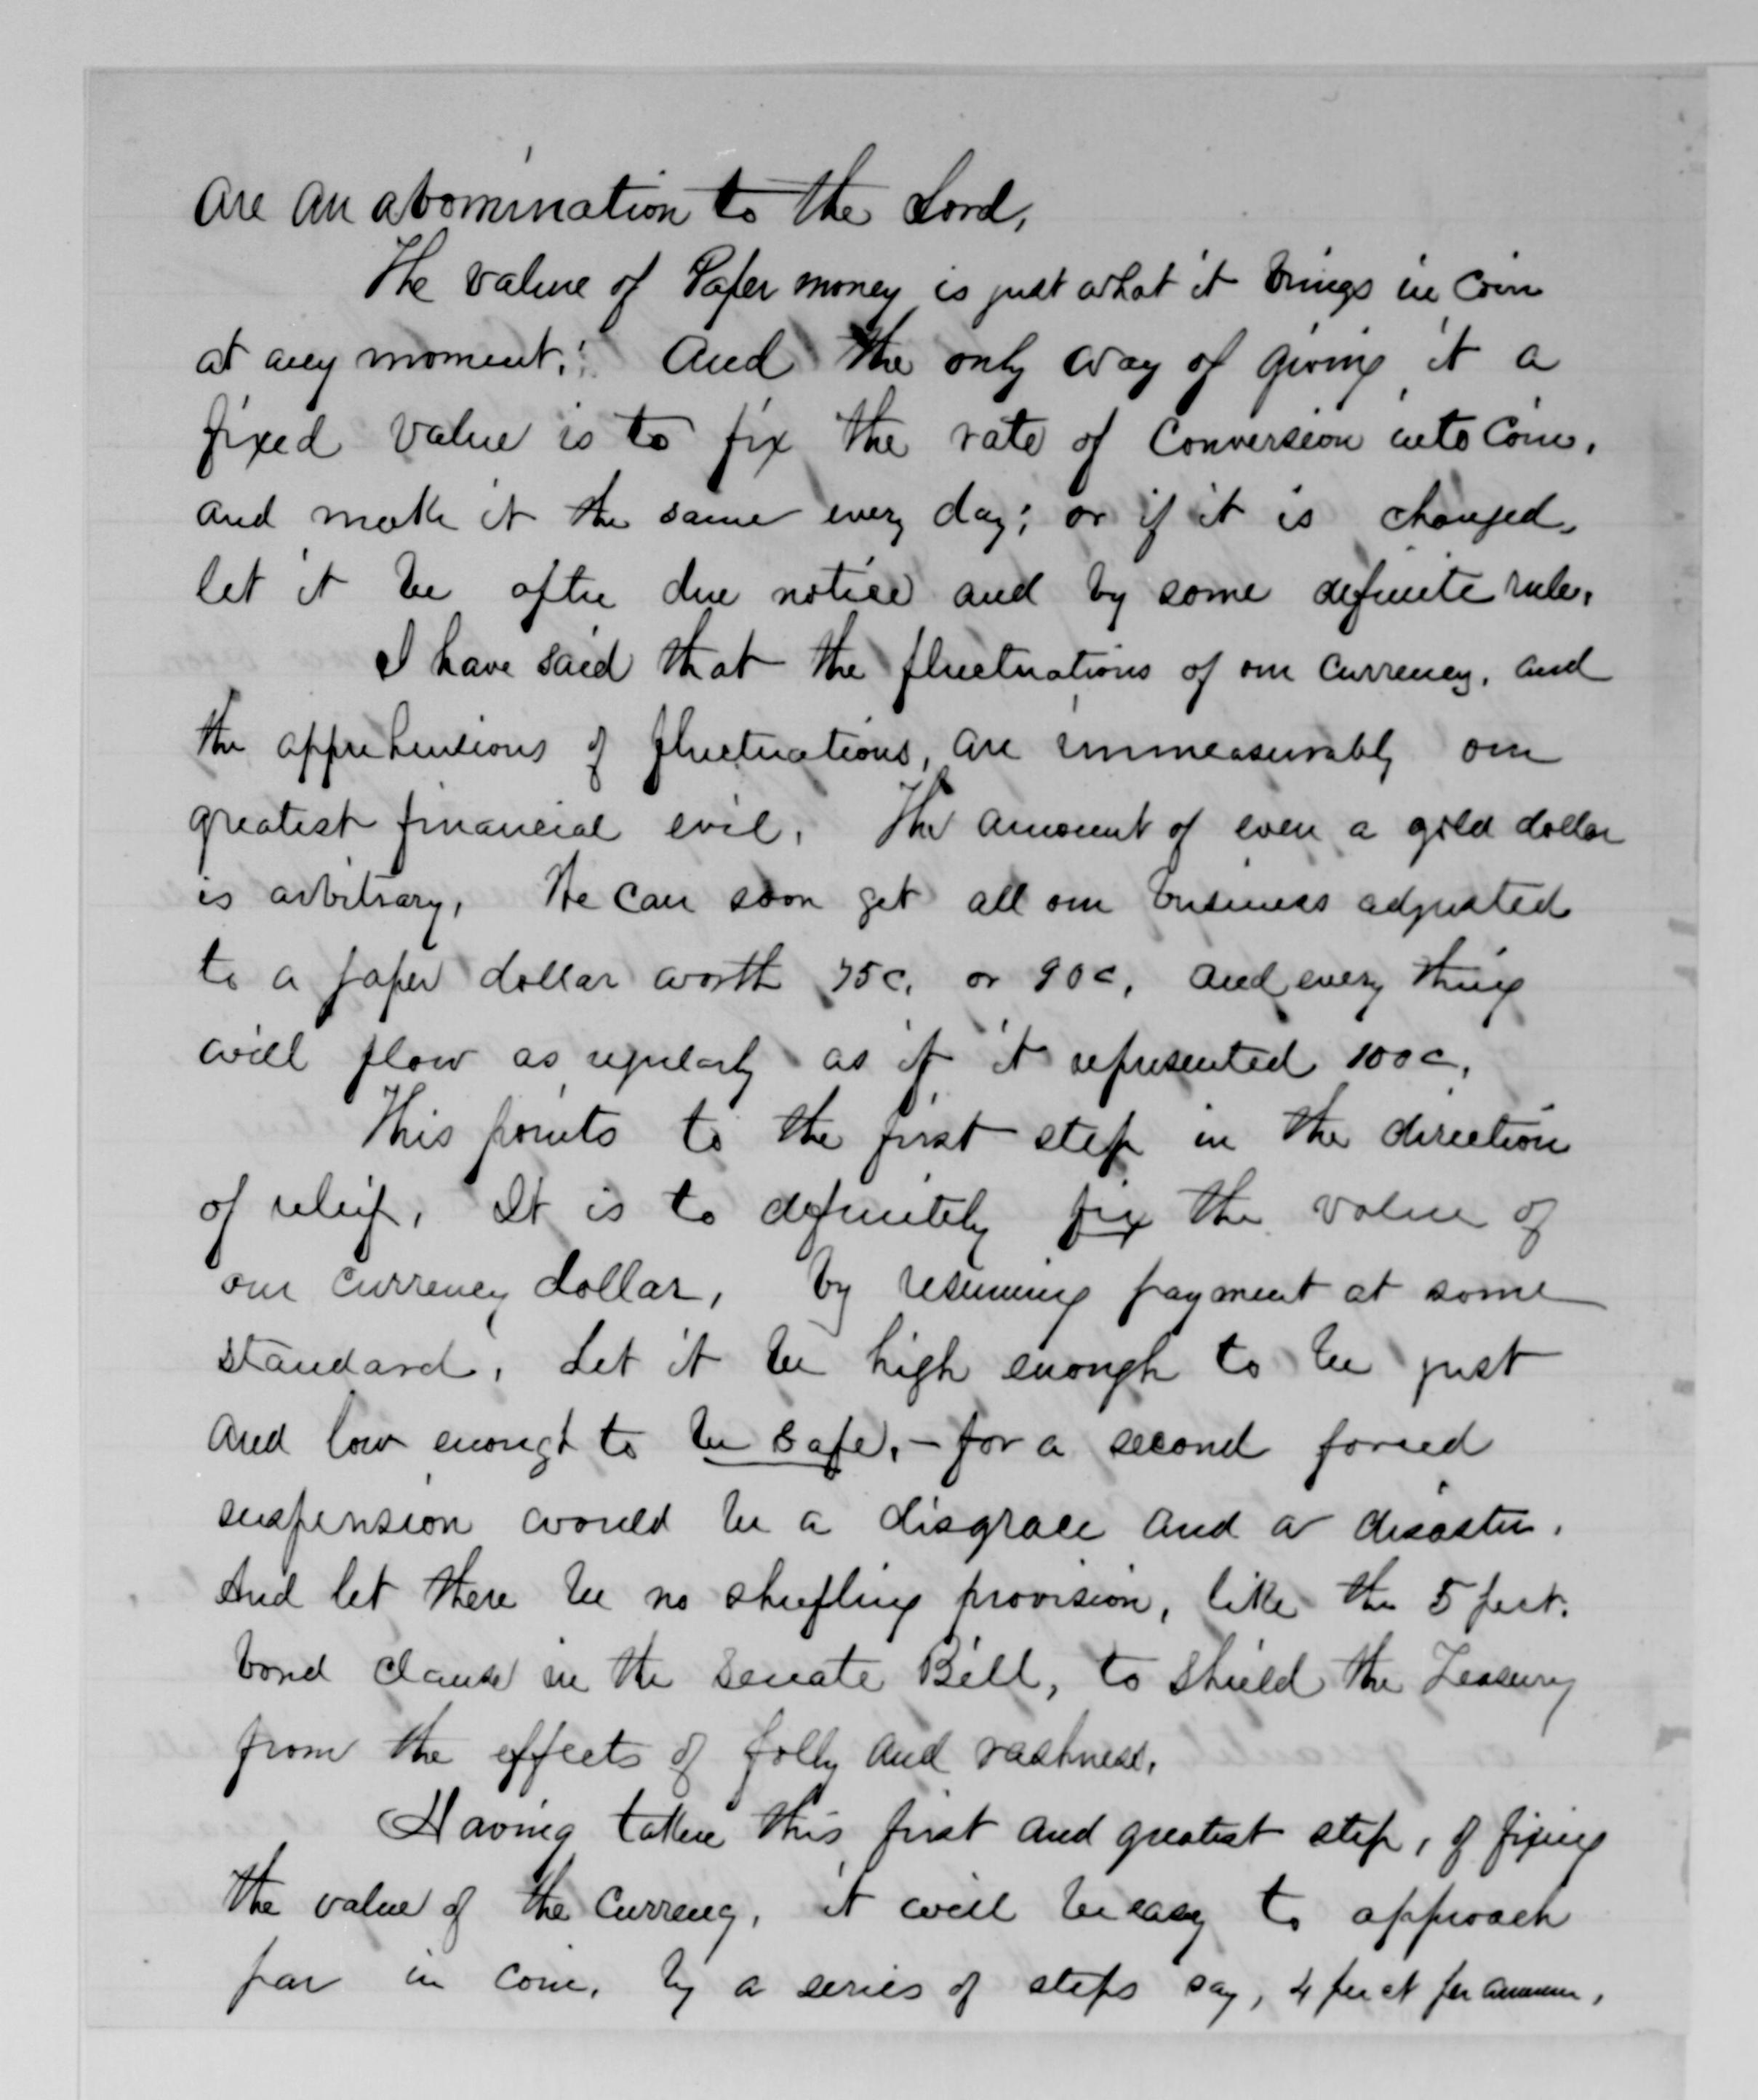 are an abomination to the Lord,
The value of Paper money is just what it brings in Coin
at any moment; And the only way of giving it a
fixed value is to fix the rate of Conversion into Coin,
and make it the same every day; or if it is changed,
let it be after due notice and by some definite rule,
I have said that the fluctuations of our currency, and
the apprehensions of fluctuations, are immeasurably our
greatest financial evil, The amount of even a gold dollar
is arbitrary, We can soon get all our business adjusted
to a paper dollar worth 75c, or 90c, and every thing
will flow as regularly as if it represented 100c,
This points to the first step in the direction
of relief, It is to definitely fix the value of
our currency dollar, by resuming payment at some
standard, Let it be high enough to be just
and low enough to be safe, - for a second forced
suspension would be a disgrace and a disaster.
And let there be no shuffling provision, like the 5 pert.
bond clause in the Senate Bill, to shield the Treasury
from the effects of folly and rashness,
Having taken this first and greatest step, of fixing
the value of the Currency, it will be easy to approach
par in coin, by a series of steps say, 4 per ct per annum,